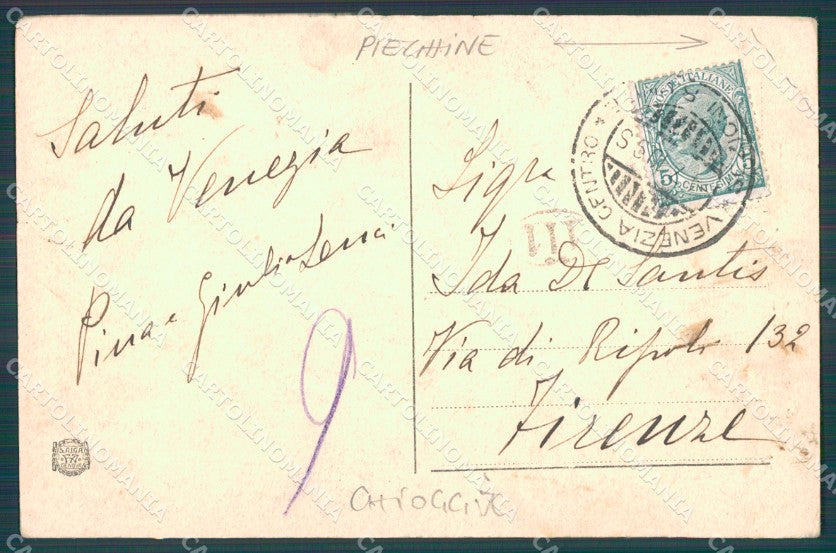 PIECHINE
POSTE ITALIANE
5 CENTESIMI 5
* VENEZIA CENTRO *
Saluti
da Venezia
Pina e Giulio Lenci
Sigra
III
Ida De Santis
Via di Ripoli 132
Firenze
9
S.A.I.G.A.
GENOVA
CHIOGGIA
CARTOLINOMANIA